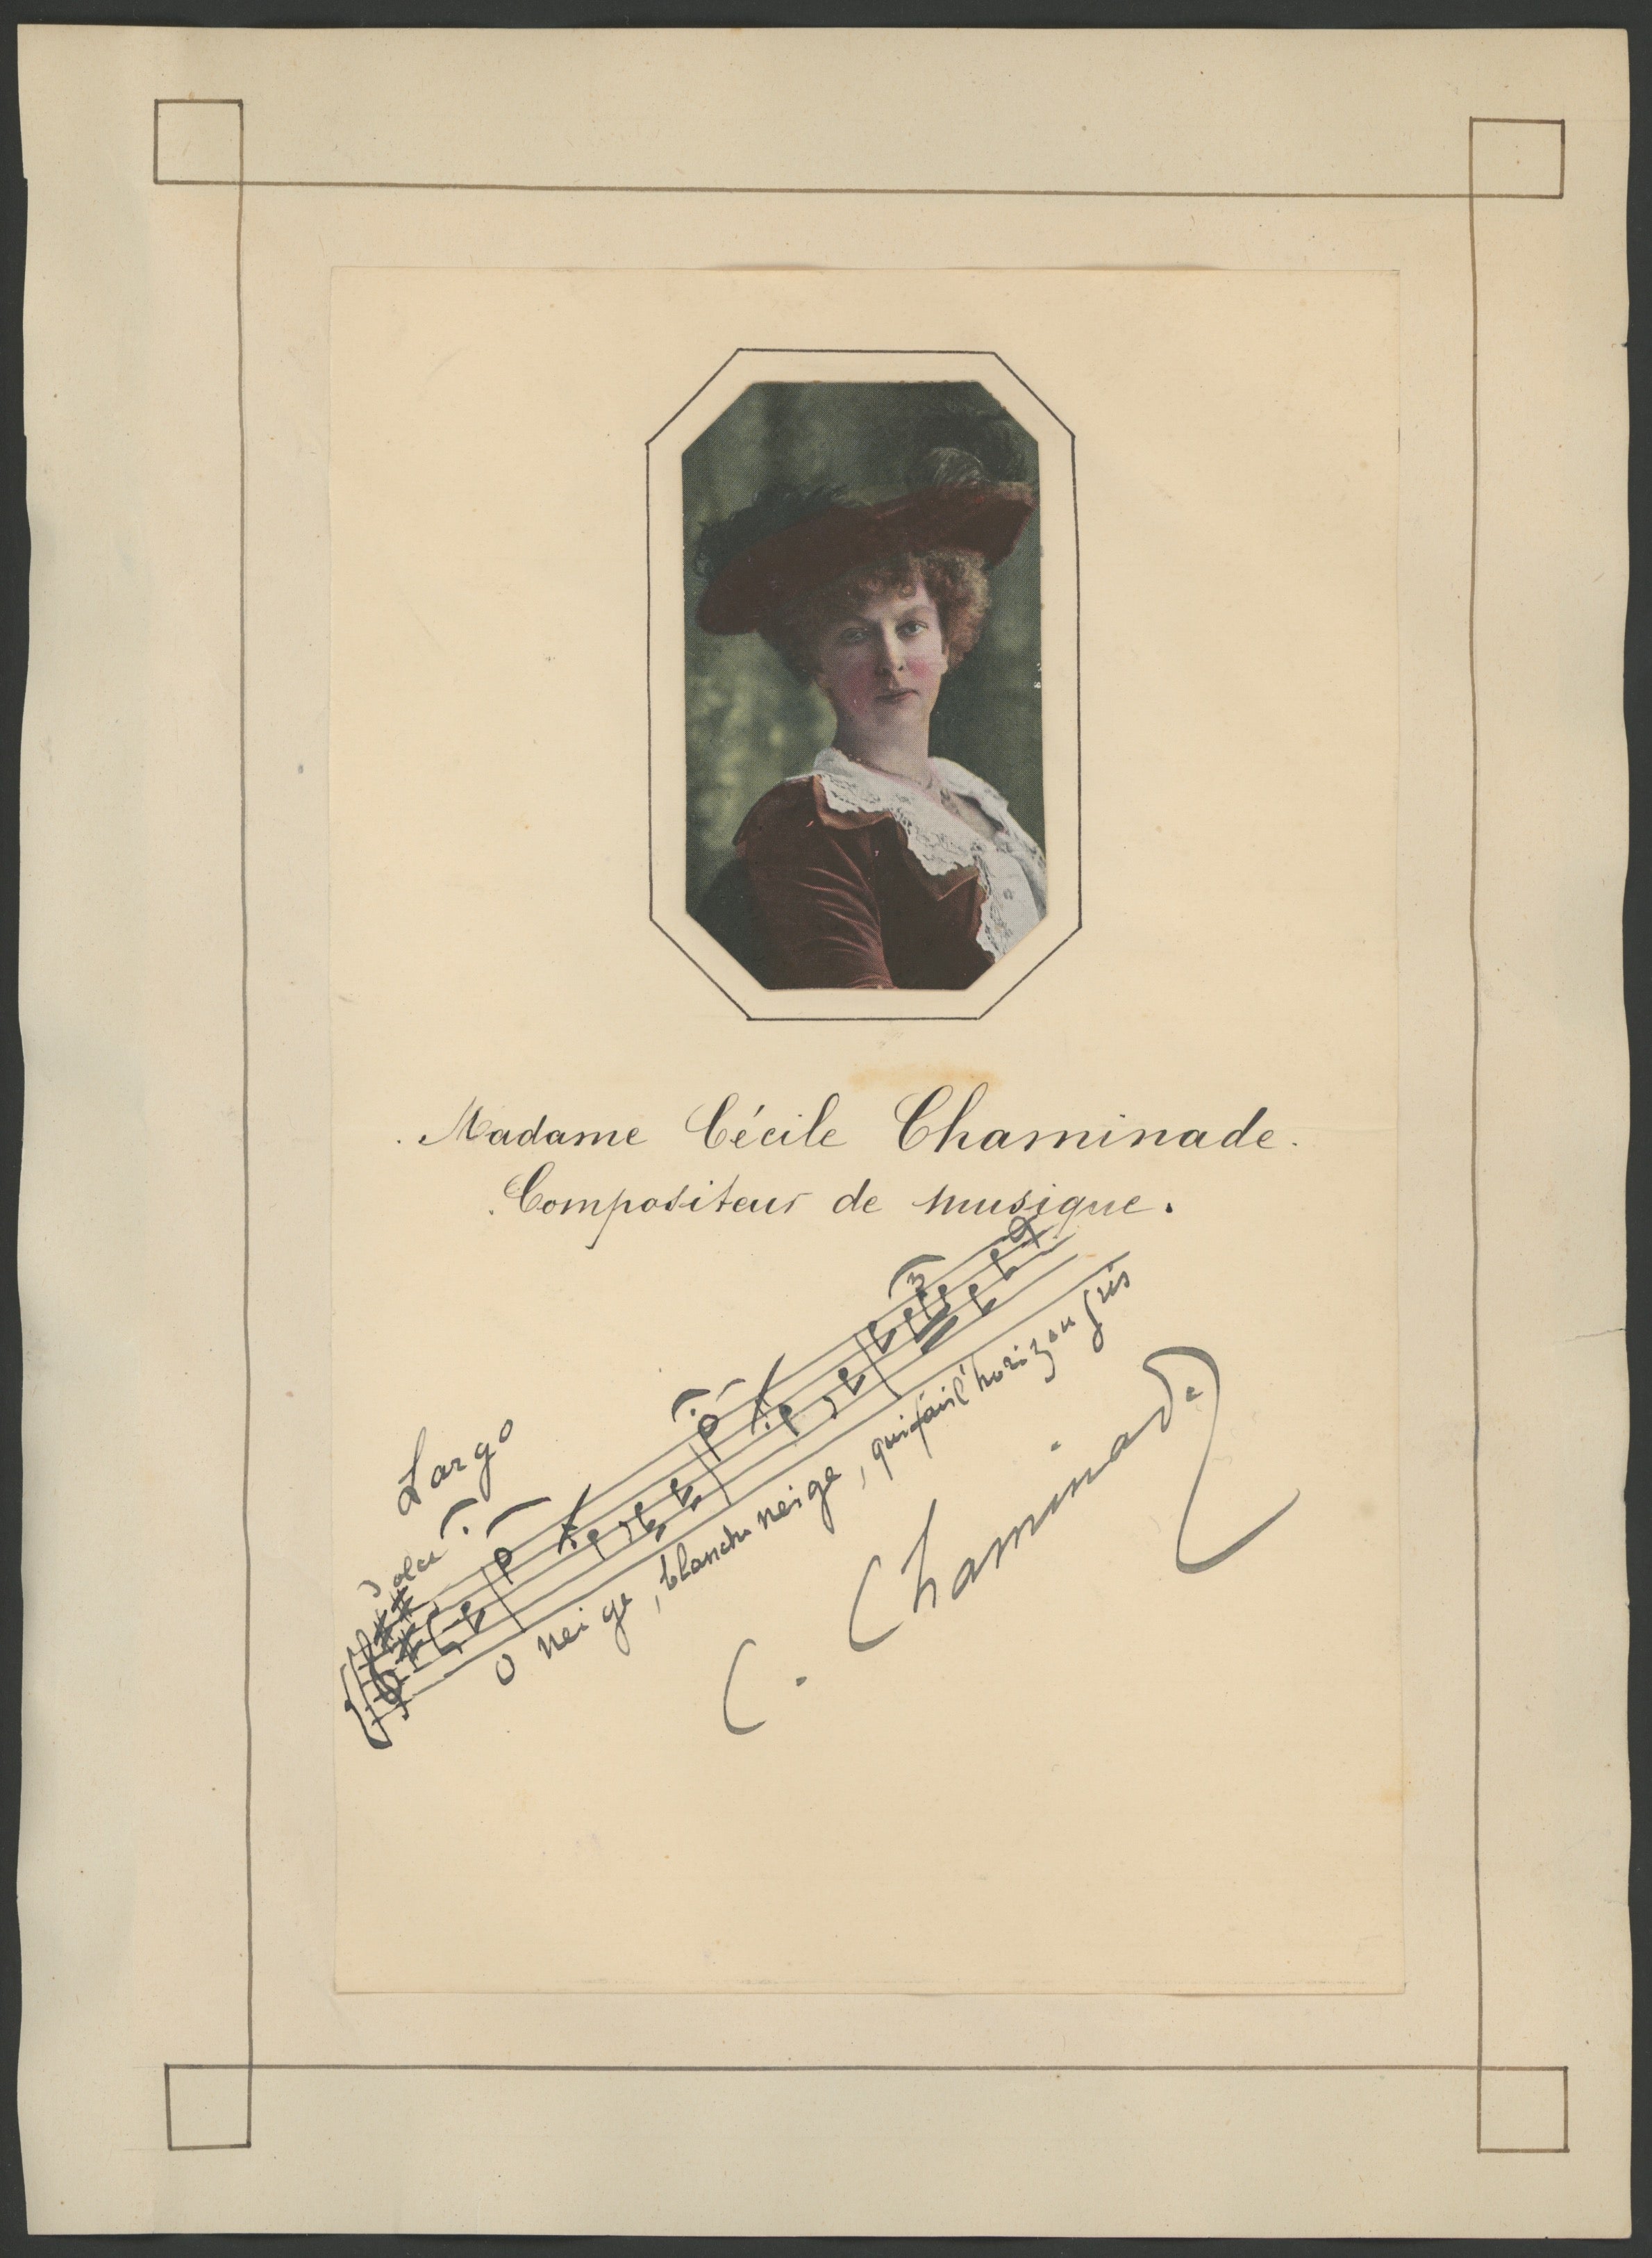 . Madame Cécile Chaminade.
. Compositeur de musique.
Largo
dolce
3
O neige, blanche neige, qui fais l'horizon gris
C. Chaminade